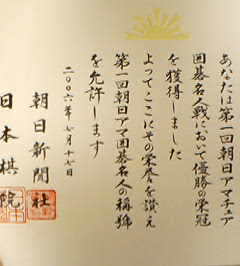 あなたは第一回朝日アマチュア
囲碁名人戦において優勝の栄冠
を獲得しました
よってここにその栄誉を讃え
第一回朝日アマ囲碁名人の称號
を允許します
二〇〇六年七月十七日
朝日新聞社
日本棋院